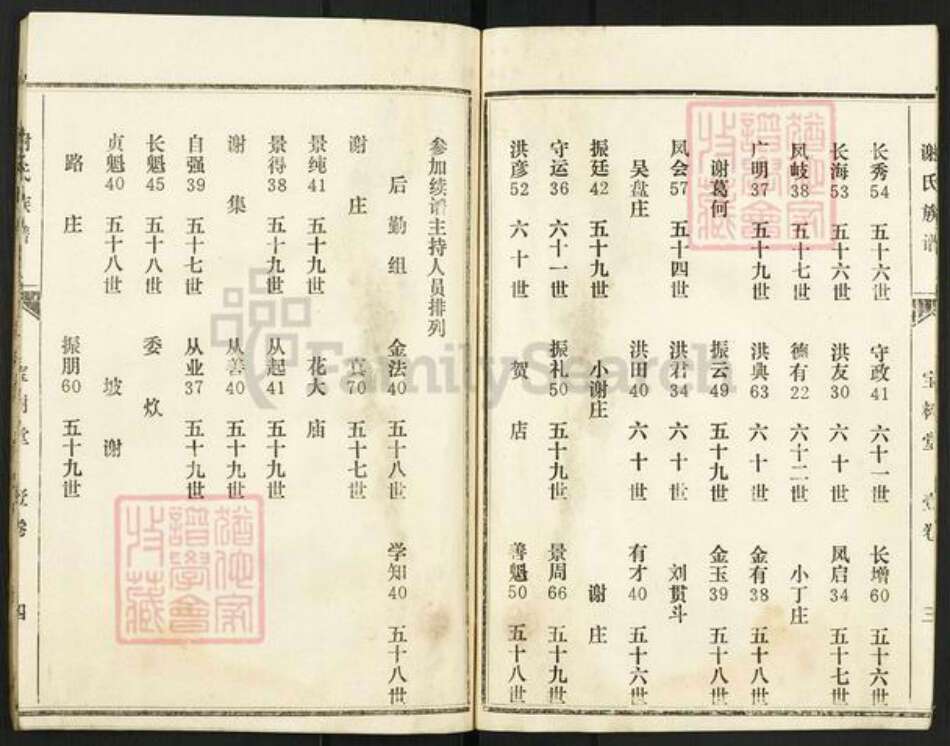 谢氏族谱 宝树堂 壹卷 三
长秀54 五十六世 守政41 六十一世 长增60 五十六世
长海53 五十六世 洪友30 六十世 凤启34 五十七世
凤岐38 五十七世 德有22 六十二世 小丁庄
广明37 五十九世 洪典63 六十世 金有38 五十八世
谢葛何 振云49 五十九世 金玉39 五十八世
凤会57 五十四世 洪君34 六十世 刘贯斗
吴盘庄 洪田40 六十世 有才40 五十六世
振廷42 五十九世 小谢庄 谢庄
守运36 六十一世 振礼50 五十九世 景周66 五十九世
洪彦52 六十世 贺店 善魁50 五十八世
参加续谱主持人员排列
后勤组 金法40 五十八世 学知40 五十八世
谢庄 真70 五十七世
景纯41 五十九世 花大庙
景得38 五十九世 从起41 五十九世
谢集 从善40 五十九世
自强39 五十七世 从业37 五十九世
长魁45 五十八世 委炊
贞魁40 五十八世 坡谢
路庄 振朋60 五十九世
谢氏族谱 宝树堂 壹卷 四
FamilySearch